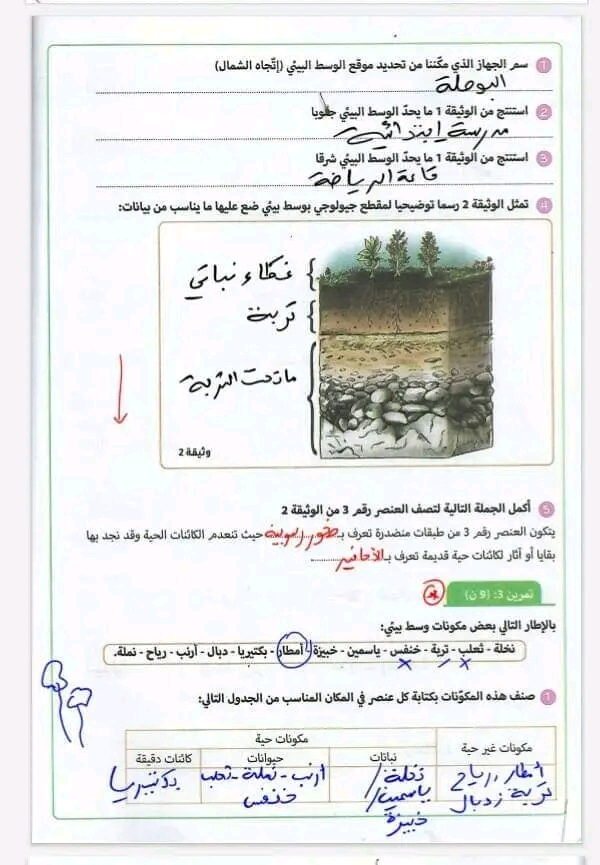 1 سم الجهاز الذي مكّننا من تحديد موقع الوسط البيئي (إتّجاه الشمال)
البوصلة
2 استنتج من الوثيقة 1 ما يحدّ الوسط البيئي جنوبا
مدرسة إبتدائية
3 استنتج من الوثيقة 1 ما يحدّ الوسط البيئي شرقا
قاعة الرياضة
4 تمثل الوثيقة 2 رسما توضيحيا لمقطع جيولوجي بوسط بيئي ضع عليها ما يناسب من بيانات:
غطاء نباتي
تربة
ماتحت التربة
وثيقة 2
5 أكمل الجملة التالية لتصف العنصر رقم 3 من الوثيقة 2
يتكون العنصر رقم 3 من طبقات منضدرة تعرف بـ صخور رسوبية حيث تنعدم الكائنات الحية وقد نجد بها
بقايا أو آثار لكائنات حية قديمة تعرف بـ الأحافير
تمرين 3: (9 ن)
بالإطار التالي بعض مكونات وسط بيئي:
نخلة - ثعلب - تربة - خنفس - ياسمين - خبيزة - أمطار - بكتيريا - دبال - أرنب - رياح - نملة.
1 صنف هذه المكوّنات بكتابة كل عنصر في المكان المناسب من الجدول التالي:
مكونات غير حية مكونات حية
نباتات حيوانات كائنات دقيقة
أمطار, رياح نخلة/ أرنب - نملة - ثعلب بكتيريا
تربة دبال ياسمين/ خنفس
خبيزة